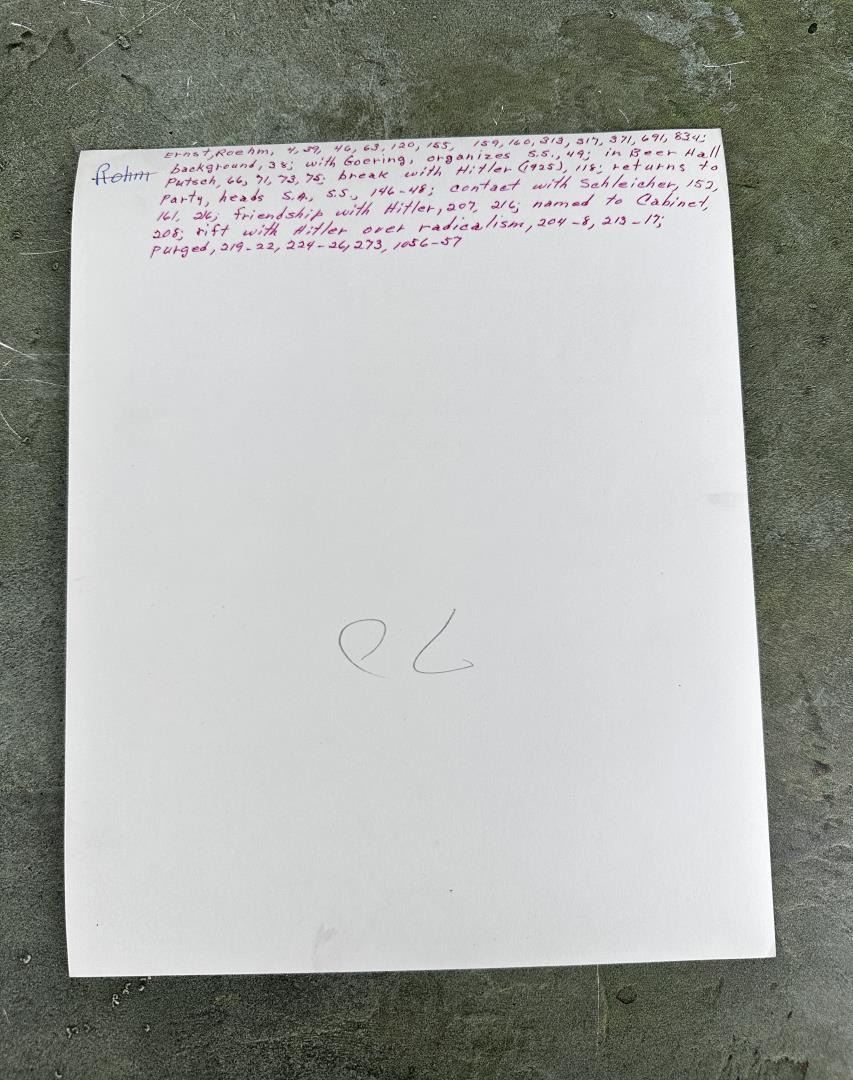 Ernst, Roehm, 4, 39, 46, 63, 120, 155, 159, 160, 313, 317, 371, 691, 834;
Rohm background, 38; with Goering, organizes S.S., 49; in Beer Hall
Putsch, 66, 71, 73, 75; break with Hitler (1925), 118; returns to
Party, heads S.A., S.S., 146-48; contact with Schleicher, 152,
161, 216; friendship with Hitler, 207, 216; named to Cabinet,
208; rift with Hitler over radicalism, 204-8, 213-17;
purged, 219-22, 224-26, 273, 1056-57